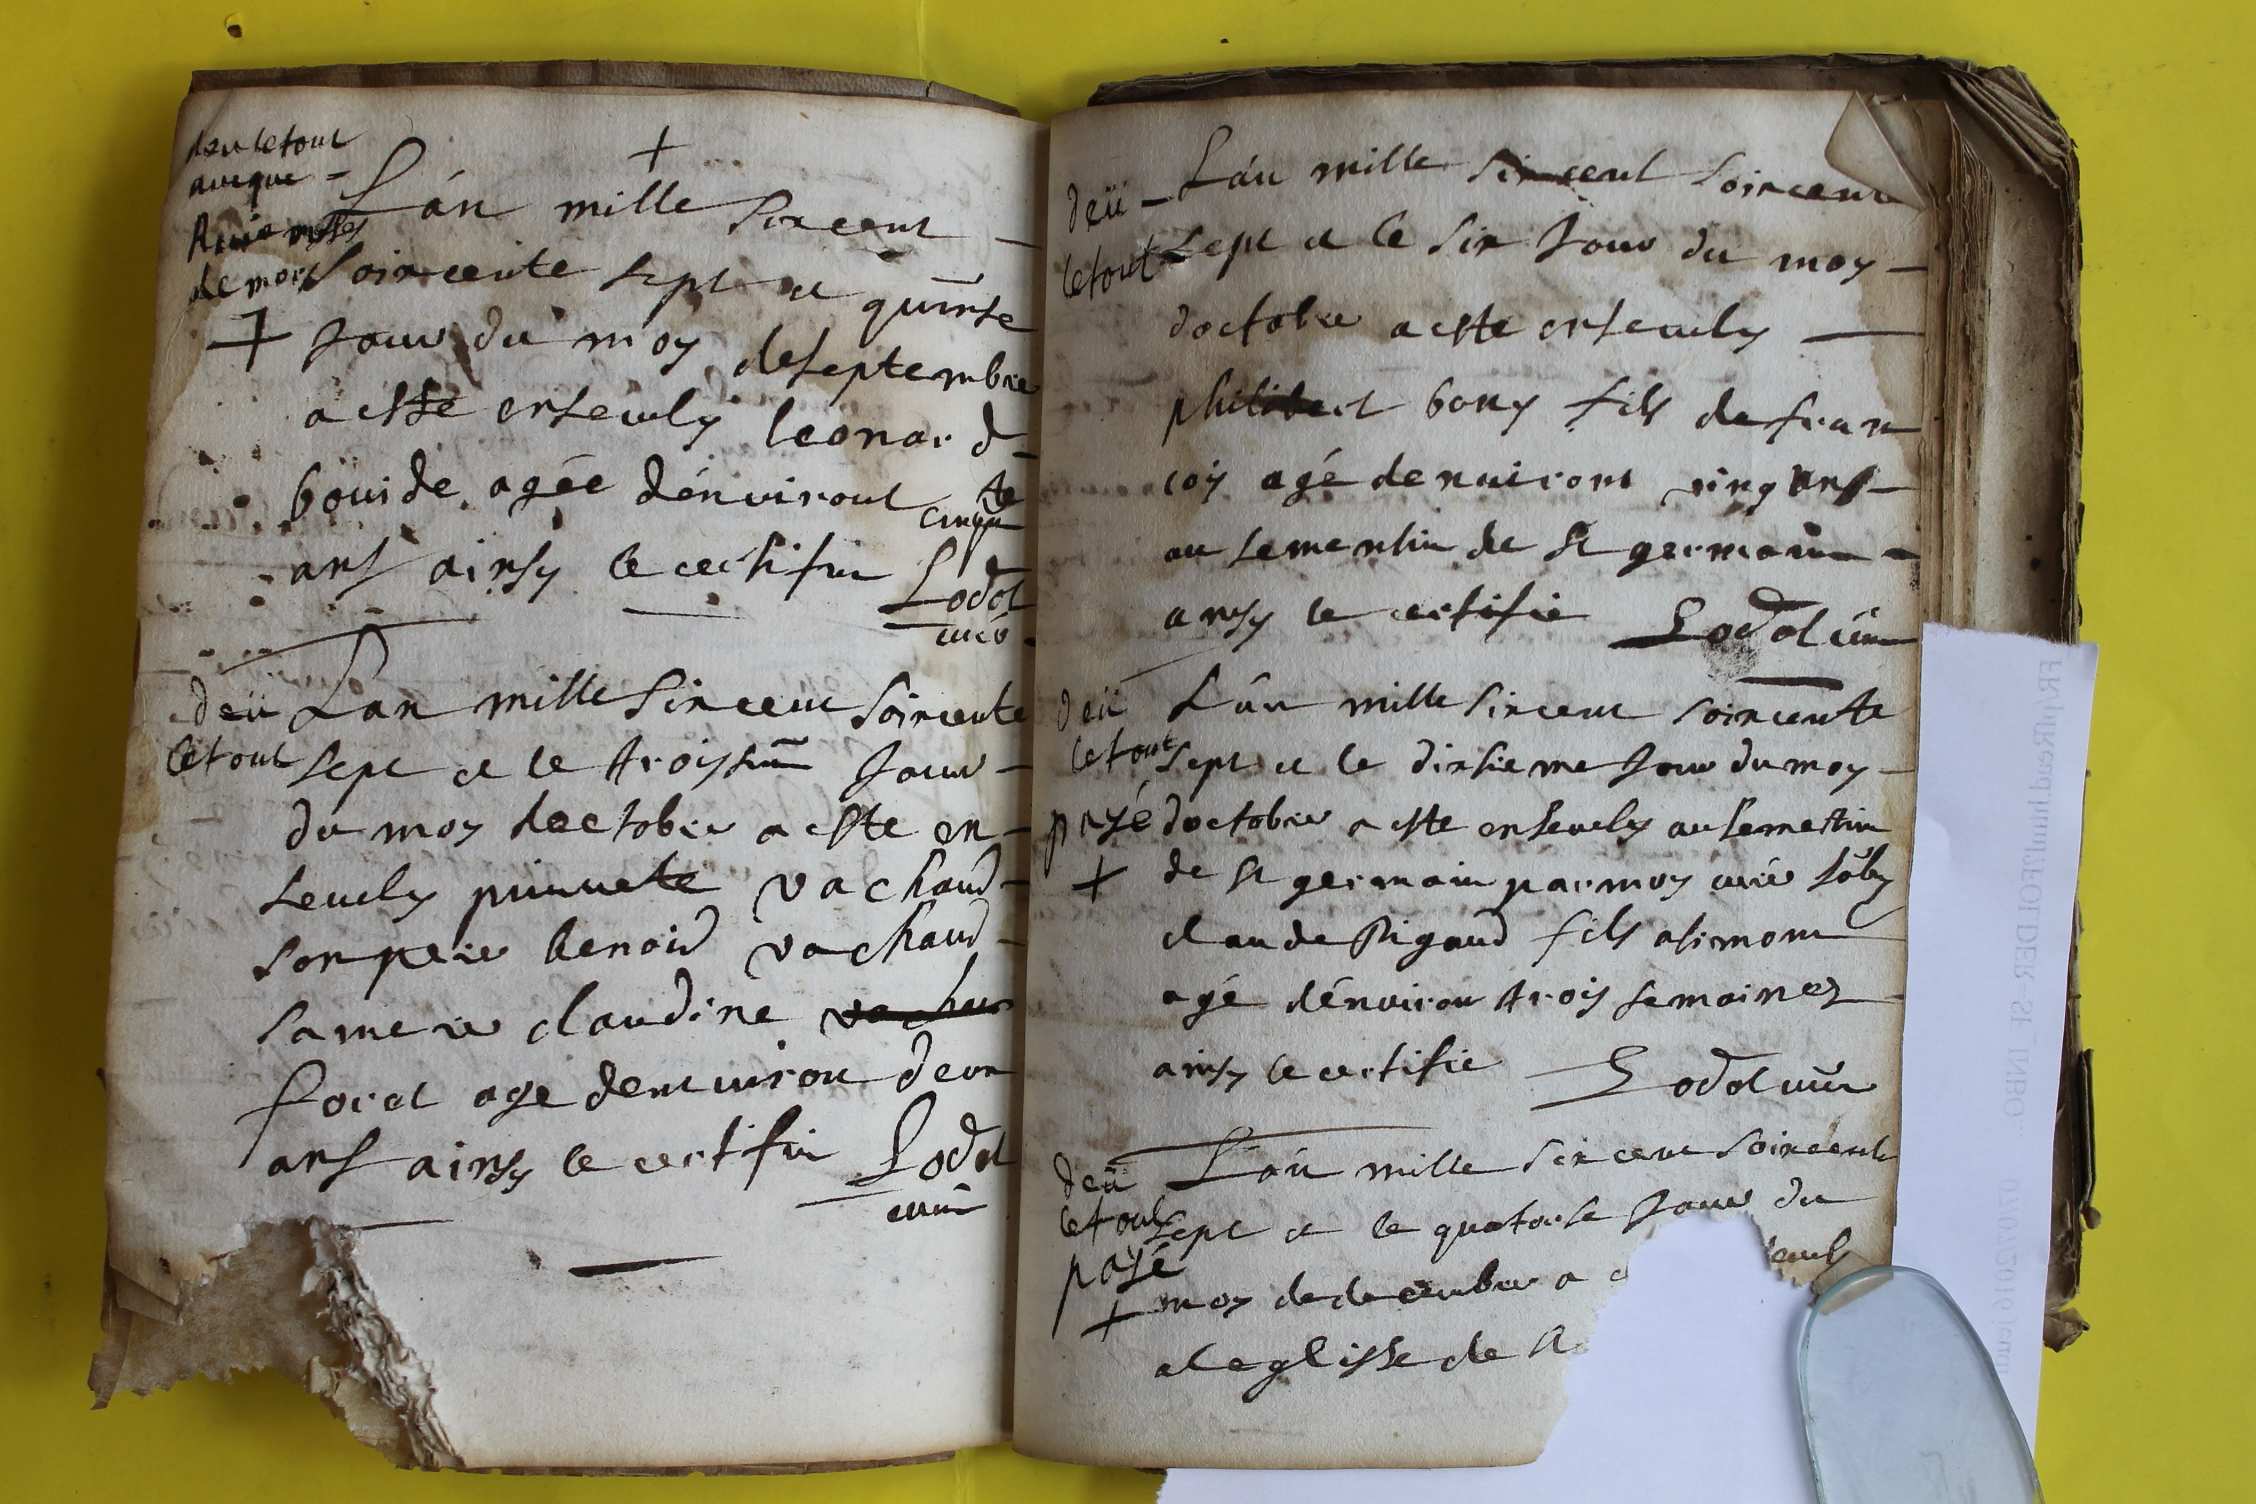 deu le tout
aveque
huis messes
de mors
+
+
L'an mille sixcent
soixcente sept et quinse
Jour du moy de septembre
a esté ensevely leonard
bouide agée d'environt cinqute
ans ainsy le certifie Lodot
curé
deü
le tout
Lan mille sixcent soixcente
sept et le troissiem Jour
du moy doctobre a este en-
sevely pierrete vachaud
son pere benoid vachaud
sa mere claudine vachau
foret age dentviron deux
ans ainsy le certifie Lodot
curé
deü
le tout
L'an mille sixcent soixcente
sept et le six Jour du moy
doctobre a este ensevely
philibert bony fils de fran
cois agé denviront cinq ans
au sementiere de st germain
ainsy le certifie Lodot curé
deü
le tout
payé
+
L'an mille sixcent soixcente
sept et le dixsieme Jour du moy
doctobre a este ensevely au sementiere
de st germain par moy curé soubs
claude Rigaud fils a simont
agé d'environ trois semaines
ainsy le certifie Lodot curé
deü
le tout
payé
+
L'an mille sixcent soixcente
sept et le quatorse Jour du
moy de decembre a
a leglisse de